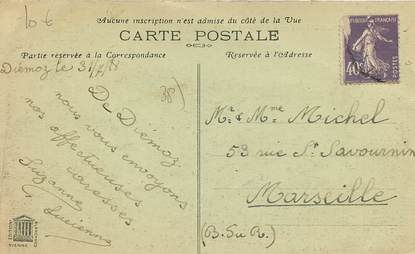 10 €
Aucune inscription n'est admise du côté de la Vue
CARTE POSTALE
Partie réservée à la Correspondance
Réservée à l'Adresse
Diémoz le
38
De Diémoz
nous vous envoyons
nos affectueuses
caresses.
Suzanne
Lucienne
RÉPUBLIQUE FRANÇAISE
POSTES
40
Mr & Mme Michel
53 rue St Savournin
Marseille
(B. du R.)